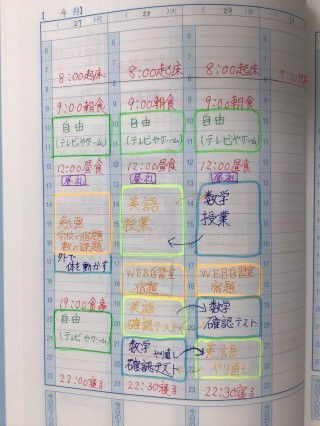 【 4 月】
27 月
28 火
29 水
30
8:00起床
9:00朝食
自由
(テレビやゲーム)
12:00昼食
昼礼
勉強
学校の宿題
数の課題
外で
体を動かす
19:00食事
自由
(テレビやゲーム)
22:00寝る
8:00起床
9:00朝食
自由
(テレビやゲーム)
12:00昼食
昼礼
英語
授業
WEB自習室
宿題
英語
確認テスト
数学 やり直し
確認テスト
22:30寝る
8:00起床
9:00朝食
自由
(テレビやゲーム)
12:00昼食
昼礼
数学
授業
WEB自習室
宿題
数学
確認テスト
英語
やり直し
22:30寝る
8:00起床